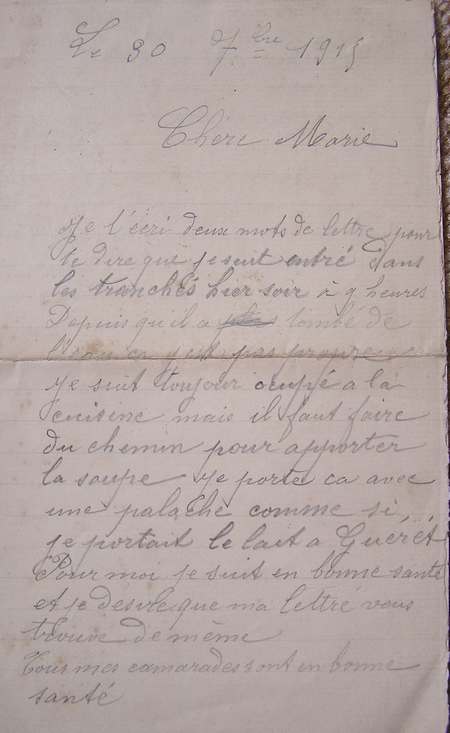 Le 30 7bre 1915
Chère Marie
Je t'écri deux mots de lettre pour
te dire que je suit entré dans
les tranchés hier soir à 9 heures
Depuis qu'il a plus tombé de
l'eau ca y est pas
Je suit toujour ocupé a la
cuisine mais il faut faire
du chemin pour apporter
la soupe Je porte ca avec
une palache comme si
je portait le lait a Guérét
Pour moi je suit en bonne santé
et je desire que ma lettre vous
trouve de même
Tous mes camarades sont en bonne
santé